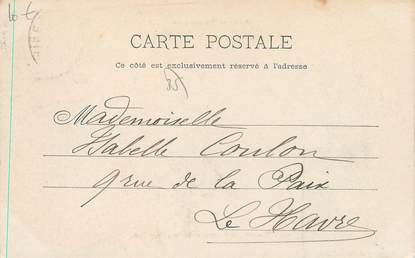 CARTE POSTALE
Ce côté est exclusivement réservé à l'adresse
Mademoiselle
Isabelle Coulon
9 rue de la Paix
Le Havre